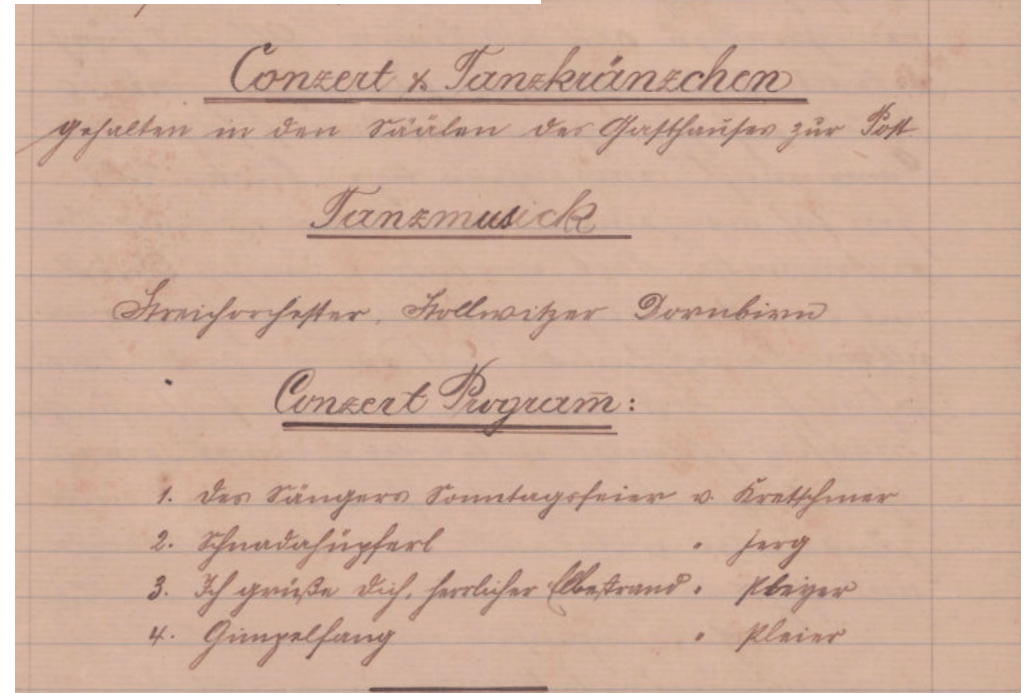 Conzert & Tanzkränzchen
gehalten in den Säälen des Gasthauses zur Post
Tanzmusick
Streichorchester, Stollwitzer Dornbirn
Conzert Program̄:
1. Des Sängers Sonntagsfeier v. Kretschmer
2. Schnadahüpferl " Jerg
3. Ich grüße dich, herrlicher Elbestrand "
4. Gimpelfang " Pleier